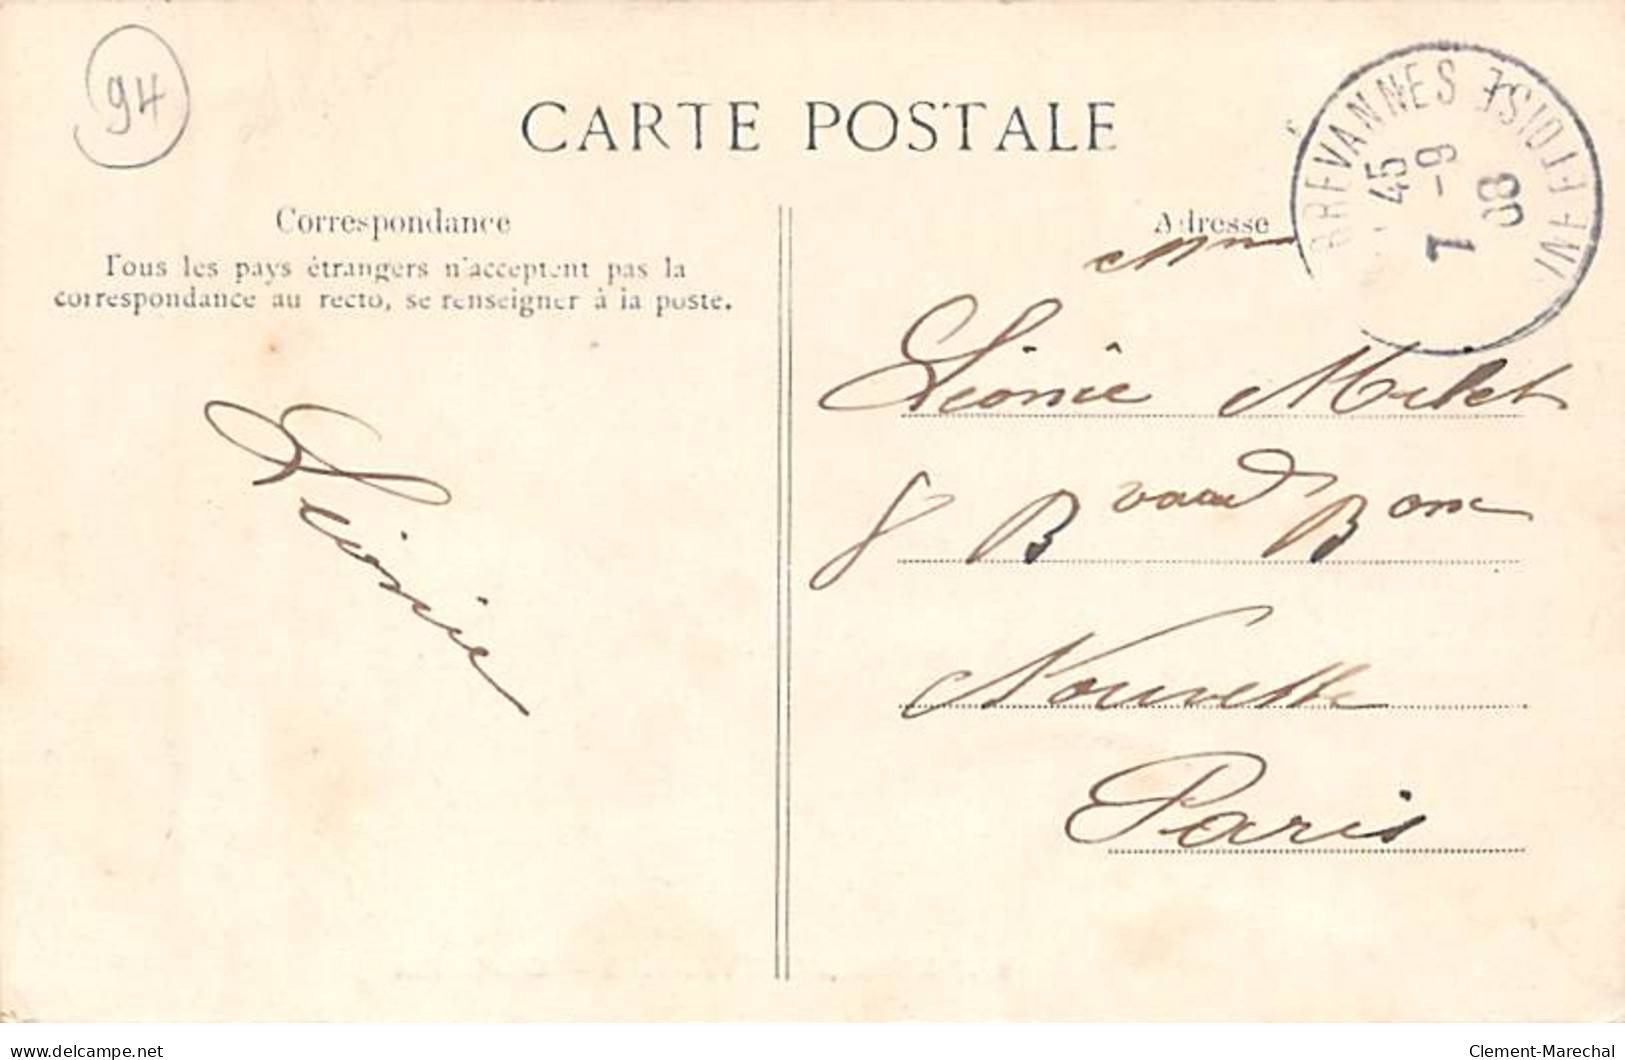 94
CARTE POSTALE
BREVANNES SEINE ET OISE
45
7 -9
08
Correspondance
Tous les pays étrangers n'acceptent pas la
correspondance au recto, se renseigner à la poste.
Léonie
Adresse
Léonie Milet
8 Bvaard Bonne
Nouvelle
Paris
delcampe.net
Clement-Marechal